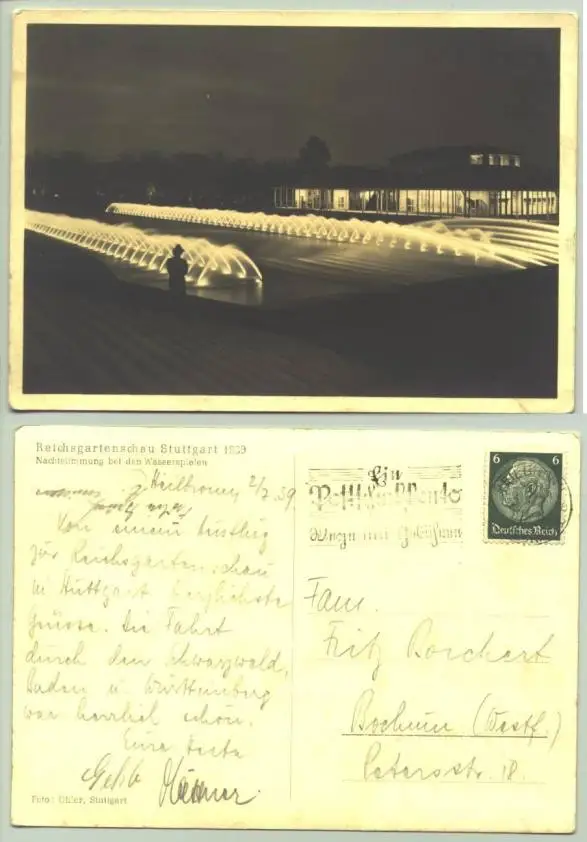 Reichsgartenschau Stuttgart 1939
Nachtstimmung bei den Wasserspielen
Heilbronn, 2/7 39.
Von einem Ausflug
zur Reichsgartenschau
in Stuttgart herzlichste
Grüsse. Die Fahrt
durch den Schwarzwald,
Baden u. Württemberg
war herrlich schön.
Eure
Foto: Ohler, Stuttgart
Ein
Postscheckkonto
6 6
Deutsches Reich
Fam.
Fritz Borchert
Bochum (Westf.)
Petersstr. 18.